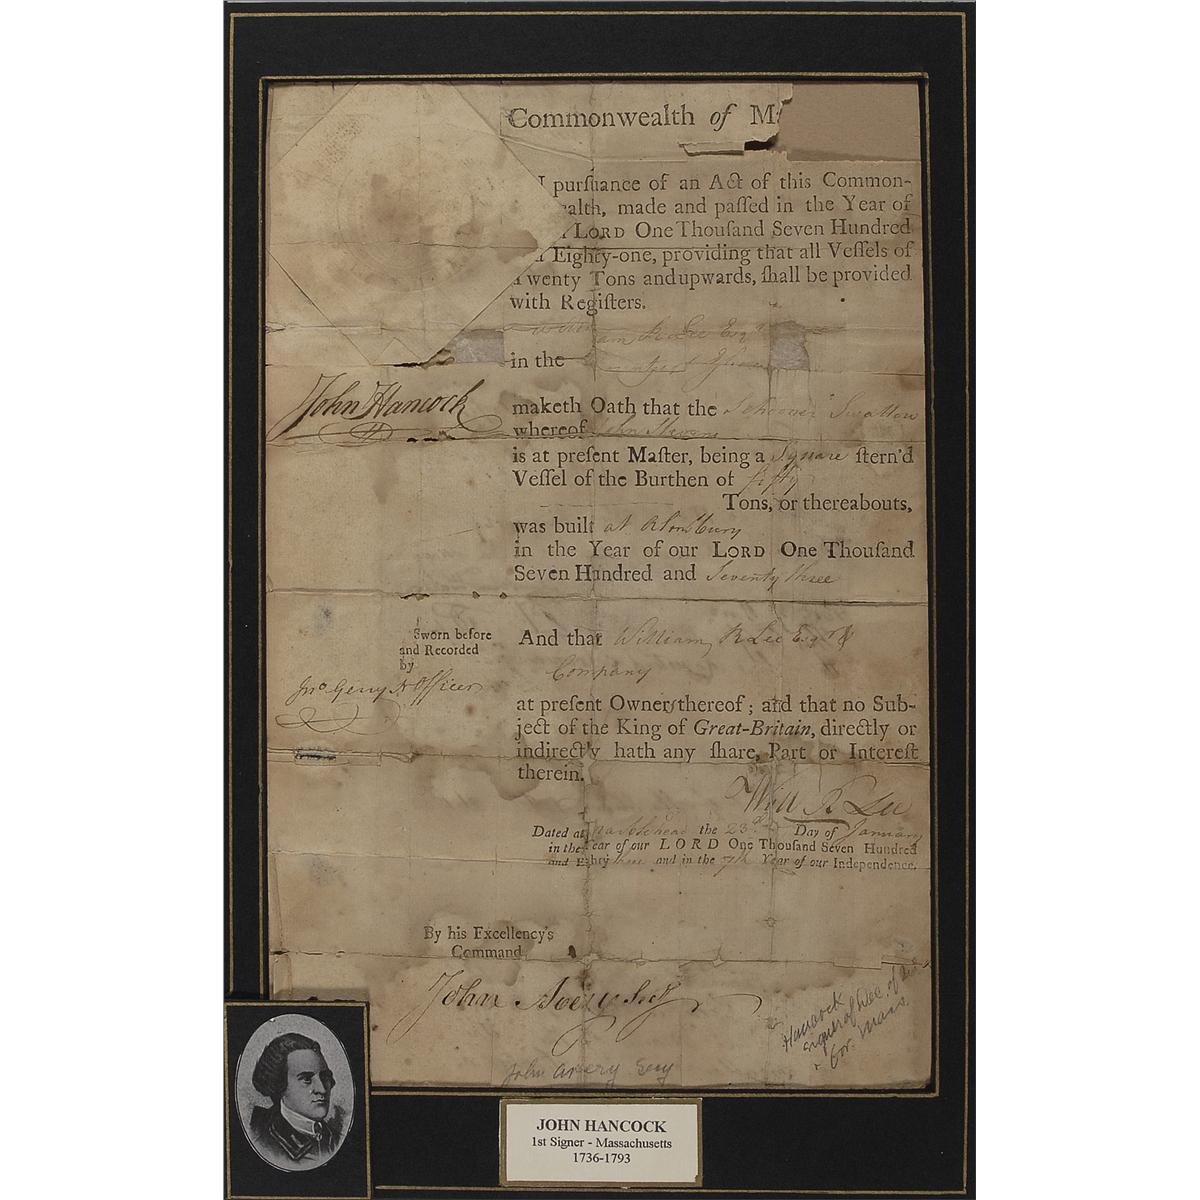 Commonwealth of M
purſuance of an Act of this Common-
ealth, made and paſſed in the Year of
LORD One Thouſand Seven Hundred
d Eighty-one, providing that all Veſſels of
Twenty Tons and upwards, ſhall be provided
with Regiſters.
William R Lee Esqr
in the
John Hancock
maketh Oath that the Schooner Swallow
whereof John Stevens
is at preſent Maſter, being a Square ſtern'd
Veſſel of the Burthen of fifty
Tons, or thereabouts,
was built at
in the Year of our LORD One Thouſand
Seven Hundred and Seventy three
Sworn before
and Recorded
by
Jno Gerry N Officer
And that William R Lee Esqr &
Company
at preſent Owners thereof; and that no Sub-
ject of the King of Great-Britain, directly or
indirectly hath any ſhare, Part or Intereſt
therein.
Will R Lee
Dated at Marblehead the 23d Day of January
in the Year of our LORD One Thouſand Seven Hundred
and Eighty three and in the 7th Year of our Independence.
By his Excellency's
Command
John Avery Secy
John Avery Secy
Hancock
signer of Dec. of Ind
& Gov. Mass.
JOHN HANCOCK
1st Signer - Massachusetts
1736-1793